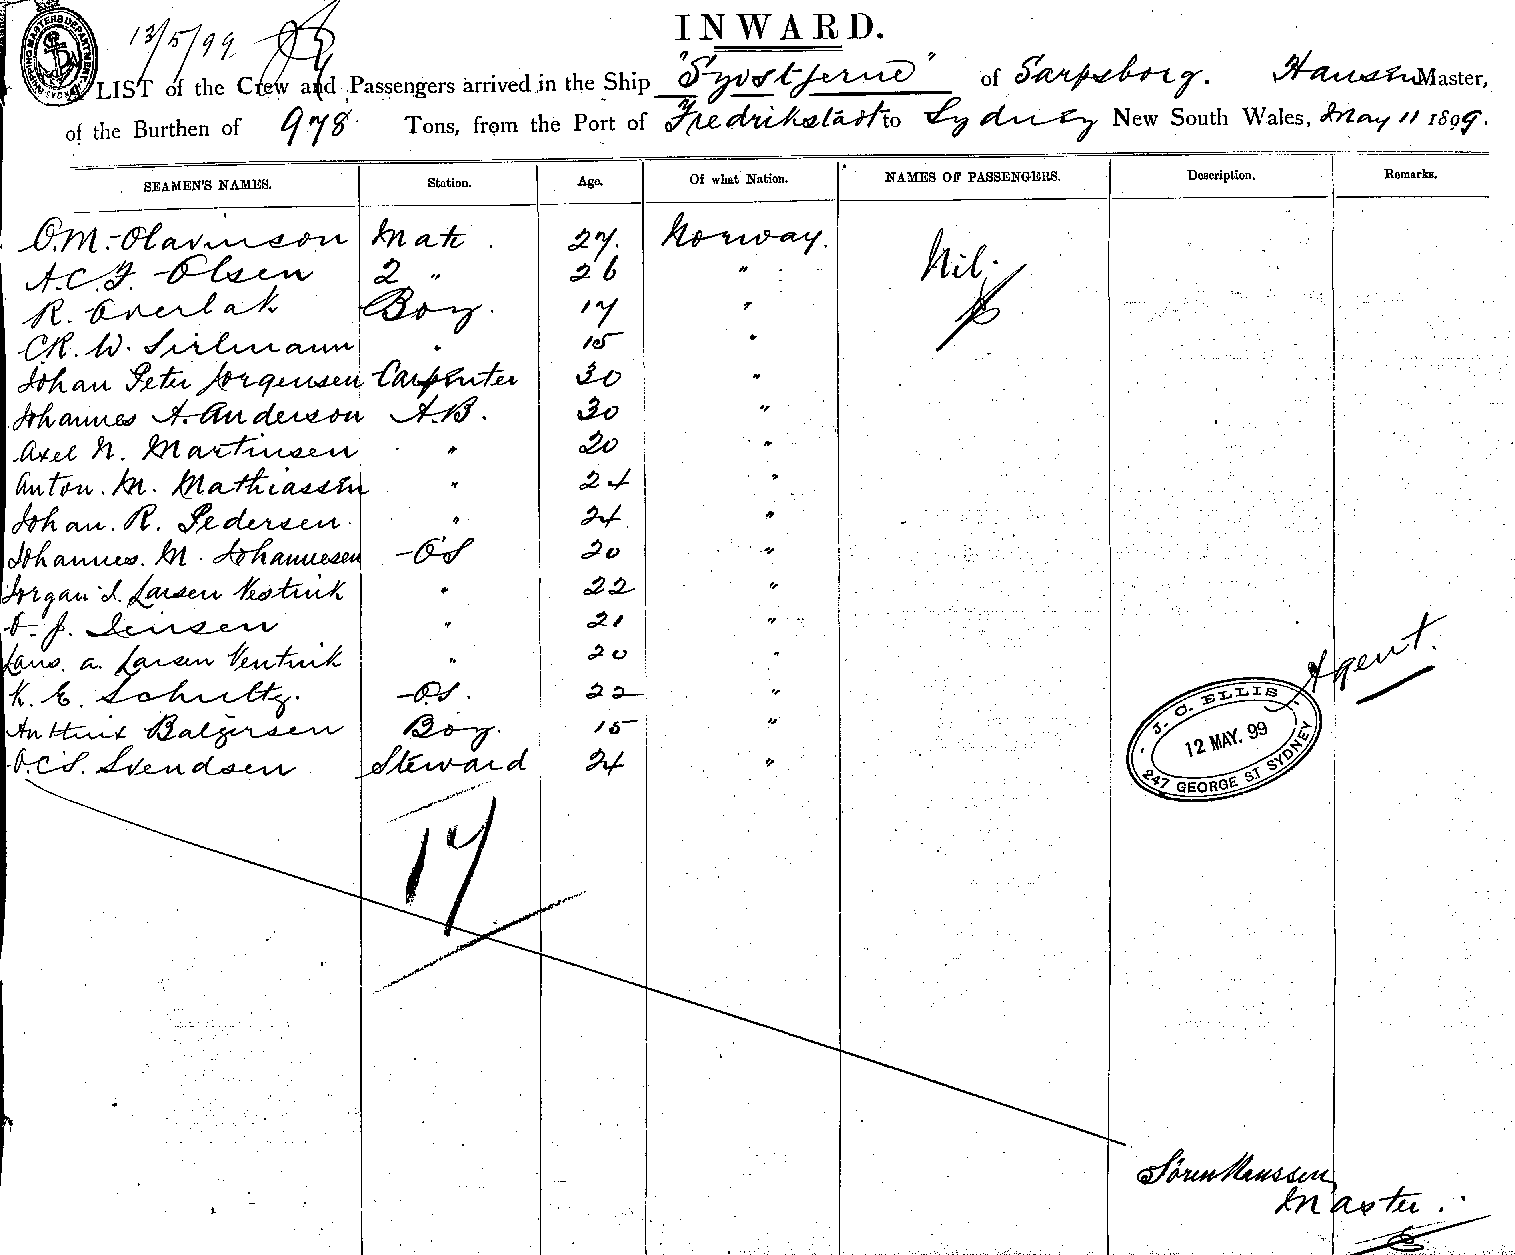 13/5/99
INWARD.
A LIST of the Crew and Passengers arrived in the Ship "Syvstjerne" of Sarpsborg. Hansen Master,
of the Burthen of 978 Tons, from the Port of Fredrikstadt to Sydney New South Wales, May 11 1899.
SEAMEN'S NAMES. Station. Age. Of what Nation. NAMES OF PASSENGERS. Description. Remarks.
O. M. Olavinson Mate. 27. Norway. Nil.
A. C. F. Olsen 2 " 26 "
R. Overlak Boy. 17 "
CR. W. " 15 "
Johan Peter Jorgensen Carpenter 30 "
Johannes A. Anderson A.B. 30 "
Axel N. Martinsen " 20 "
Anton. M. Mathiassen " 24 "
Johan. R. Pedersen. " 24 "
Johannes. M. Johannesen OS 20 "
Jorgan J. Larsen " 22 "
O. J. Jensen " 21 "
Laus. A. Larsen " 20 "
K. E. Schultz. O.S. 22 "
Boy. 15 "
O.C.S. Svendsen Steward 24 "
Agent.
J. C. ELLIS
12 MAY. 99
247 GEORGE ST SYDNEY
17
Sören Hanssen
Master.